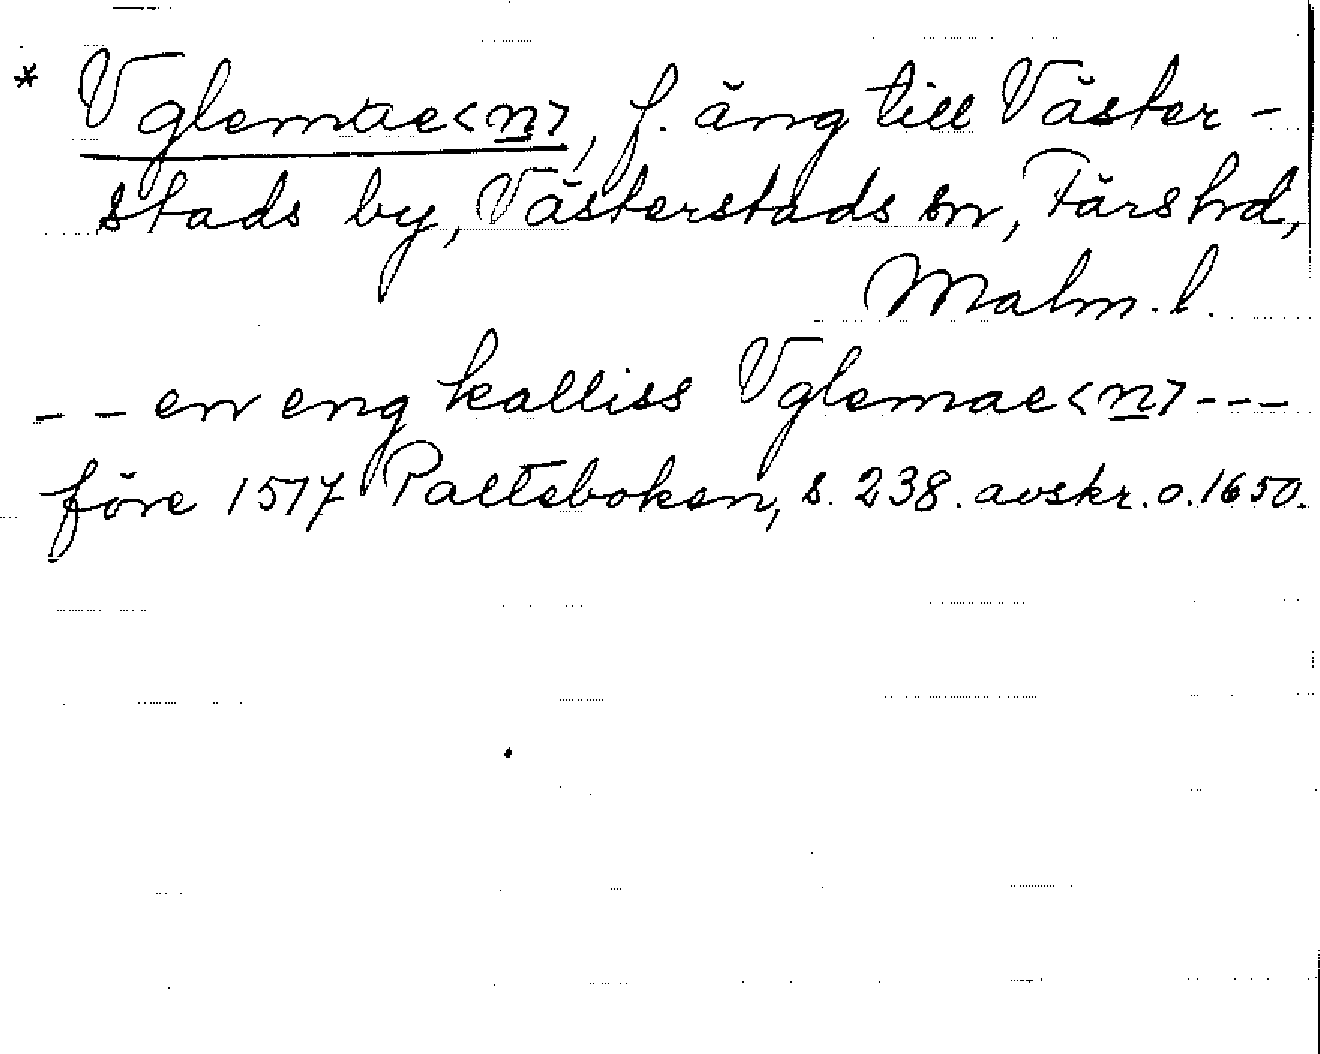 * Vglemae<n>, f. äng till Väster-
stads by, Västerstads sn, Färs hd,
Malm. l.
- - en eng kalliss Vglemae<n> - - -
före 1517 Palteboken, s. 238. avskr. o. 1650.